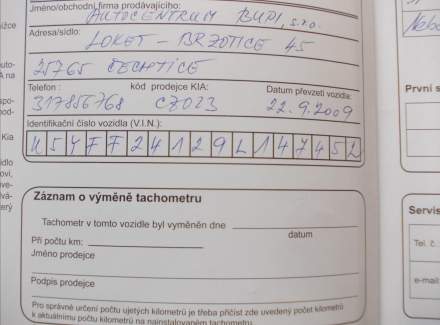 Jméno/obchodní firma prodávajícího:
AUTOCENTRUM BUPI, s.r.o.
Adresa/sídlo:
LOKET - BRZOTICE 45
25765 ČECHTICE
Telefon : kód prodejce KIA: Datum převzetí vozidla:
317856768 CZ023 22.9.2009
Identifikační číslo vozidla (V.I.N.):
U5YFF24129L147452
Záznam o výměně tachometru
Tachometr v tomto vozidle byl vyměněn dne
datum
Při počtu km:
Jméno prodejce
Podpis prodejce
Pro správné určení počtu ujetých kilometrů je třeba přičíst zde uvedený počet kilometrů
k aktuálnímu počtu kilometrů na nainstalovaném tachometru.
Kia
První s
Servis
Tel. č.
e-mail